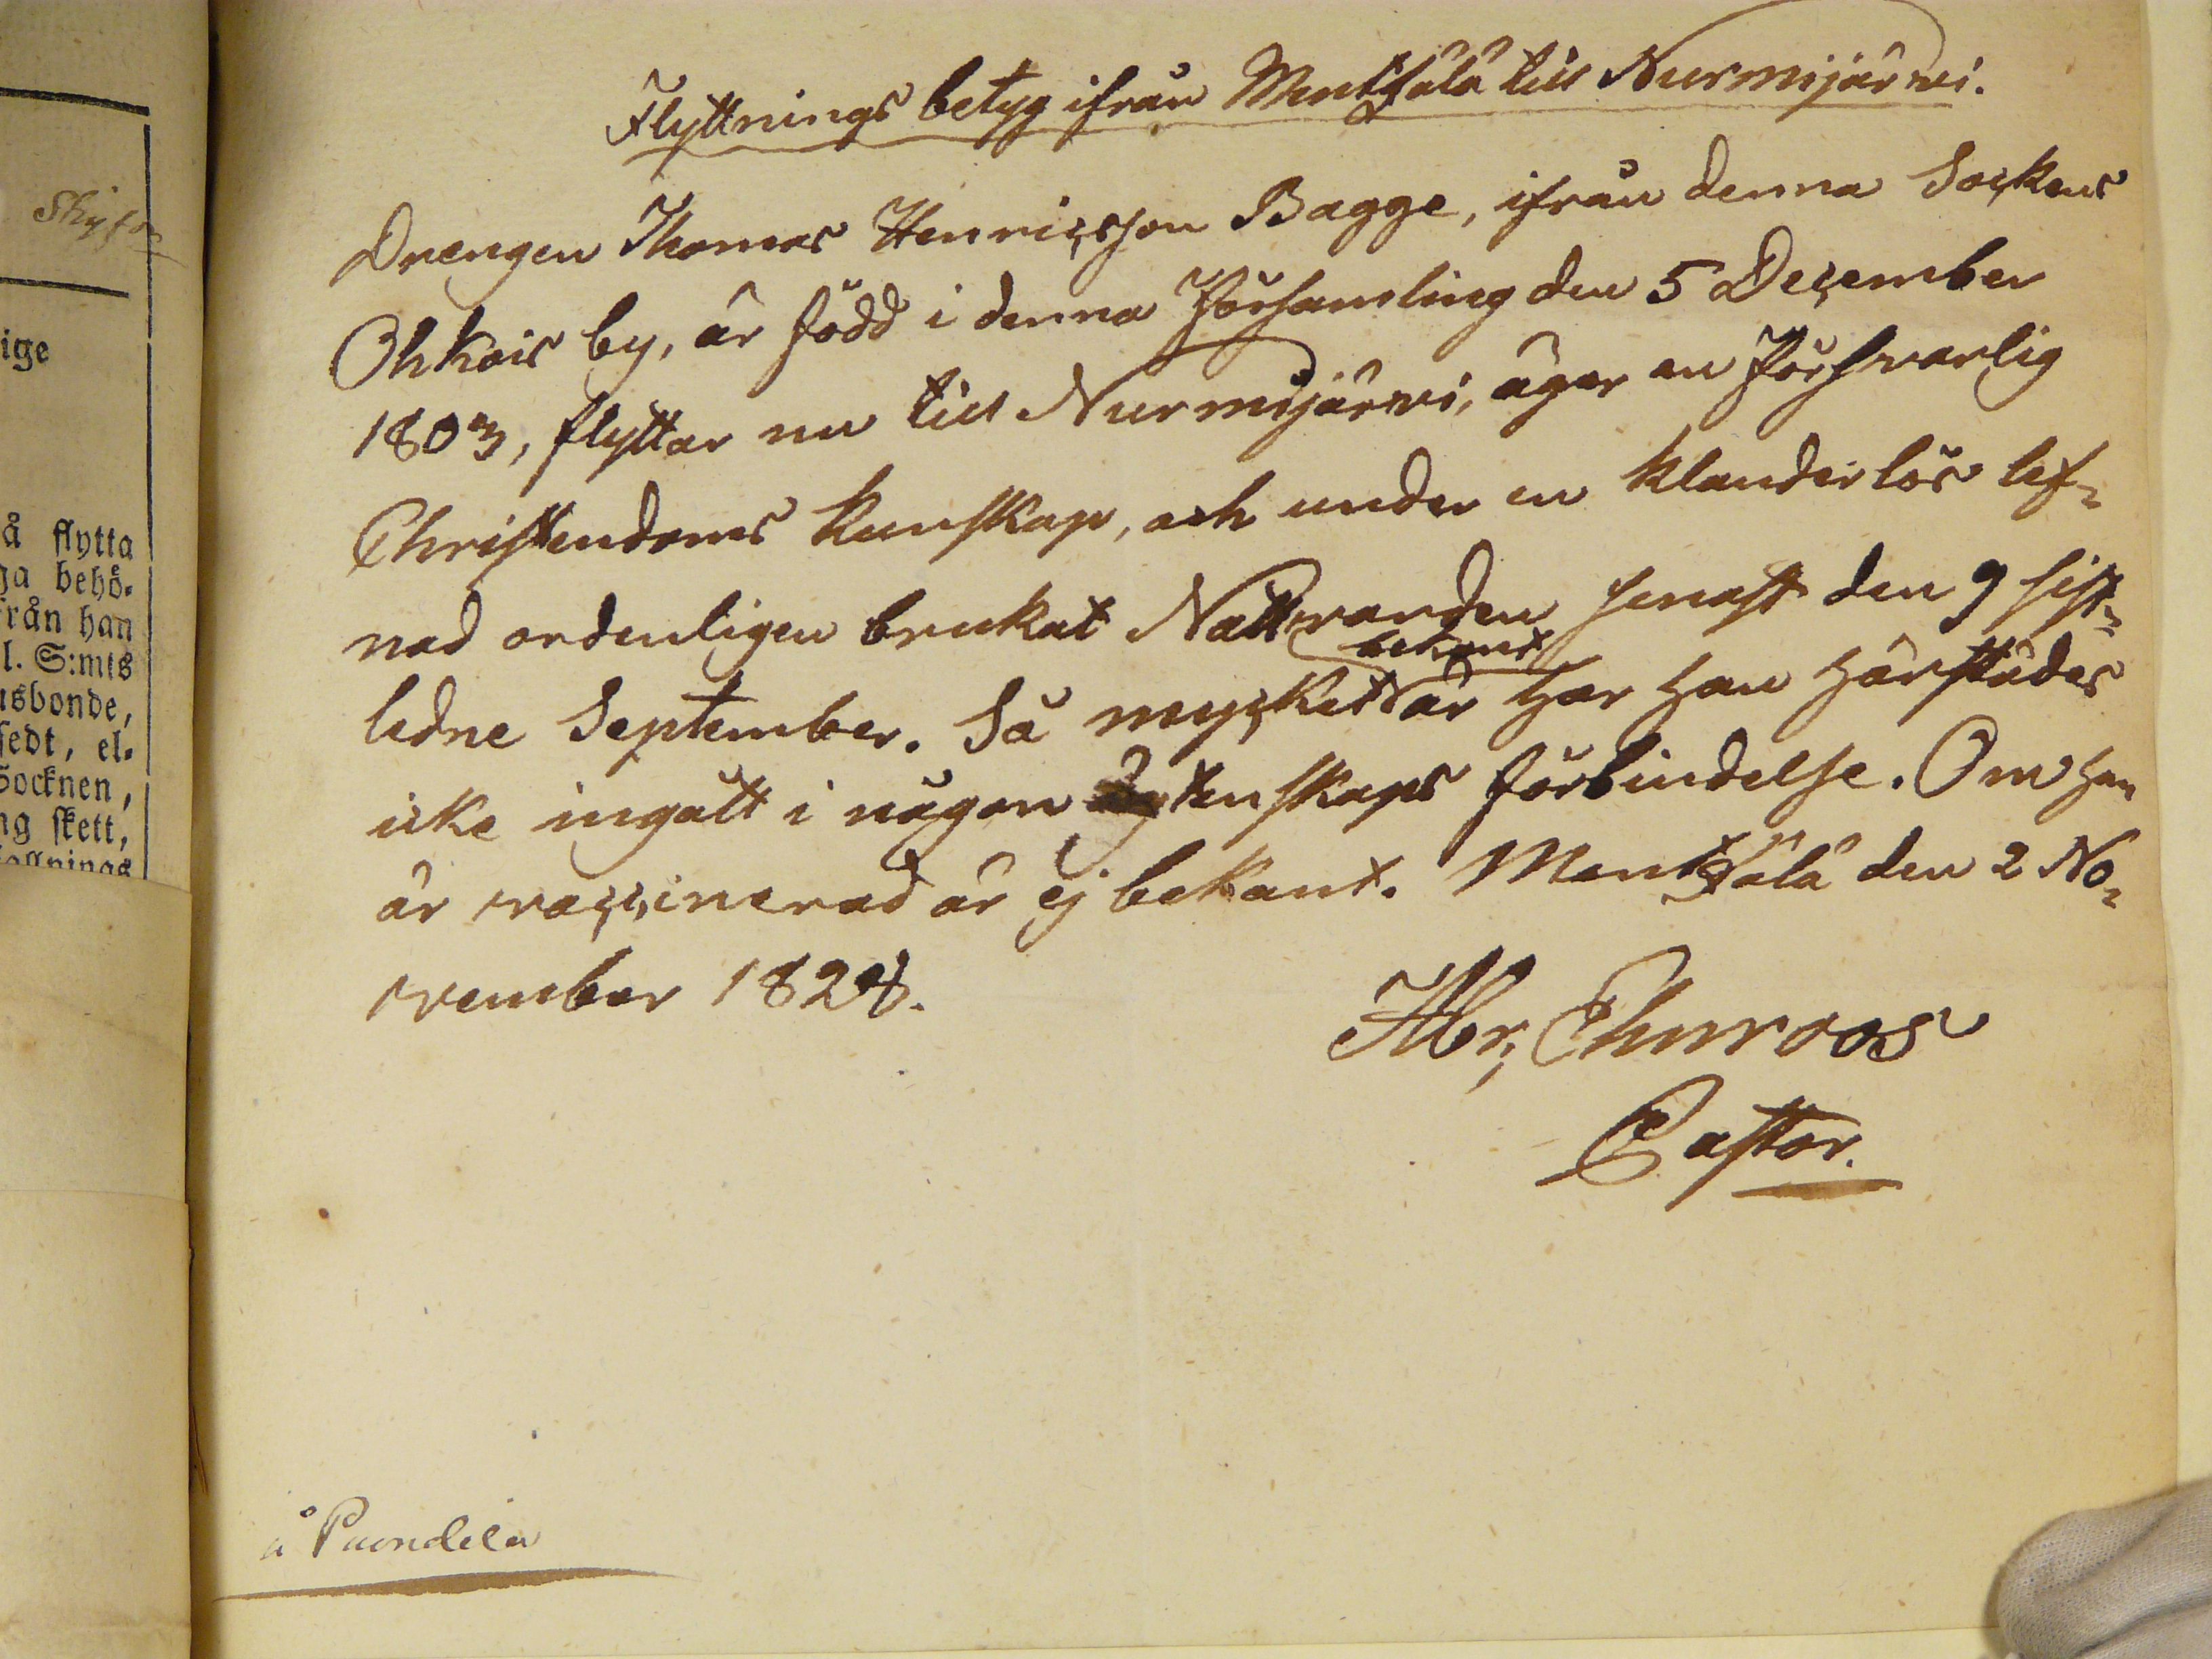 Flyttnings betyg ifrån Mentsälä till Nurmijärvi.
Drengen Thomas Henricsson Bagge, ifrån denna Sockens
Ohkois by, är född i denna Församling den 5 December
1803, flyttar nu till Nurmijärvi, äger en försvarlig
Christendoms kunskap, och under en klanderlös lef-
nad ordenligen brukat Nattvarden senast den 9 sist-
bekant
ledne September. Så mycket är har han härstädes
icke ingått i någon ägtenskaps förbindelse. Om han
är vaccinerad är ej bekant. Mentsälä den 2 No-
vember 1828.
Abr; Churoos
Pastor.
å Puondila
ige
å flytta
ga behö-
från han
l. S:mts
usbonde,
sedt, el-
Socknen,
ng skett,